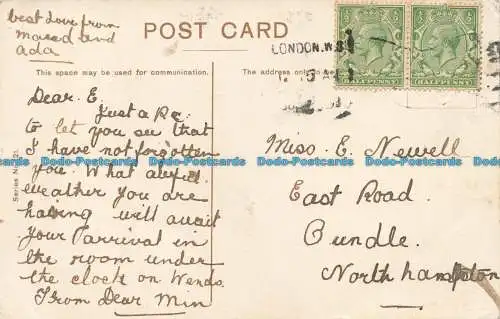 best Love from
Maud and
Ada
POST CARD
This space may be used for communication.
The address only to be
LONDON.W.8
HALFPENNY
HALFPENNY
Series No.
Dear E.
Just a P.c.
to let you see that
I have not forgotten
you. What awful
weather you are
having will await
your arrival in
the room under
the clock on Weds.
From Dear Min
Miss E. Newell
East Road.
Oundle.
Northampton
Dodo-Postcards.com